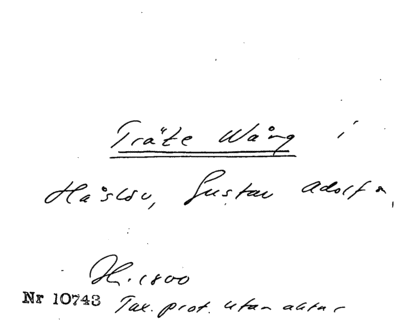 Träte Wång i
Håslöv, Gustav Adolf n,
H. 1800
Nr 10743 Tax. prot. utan aktnr